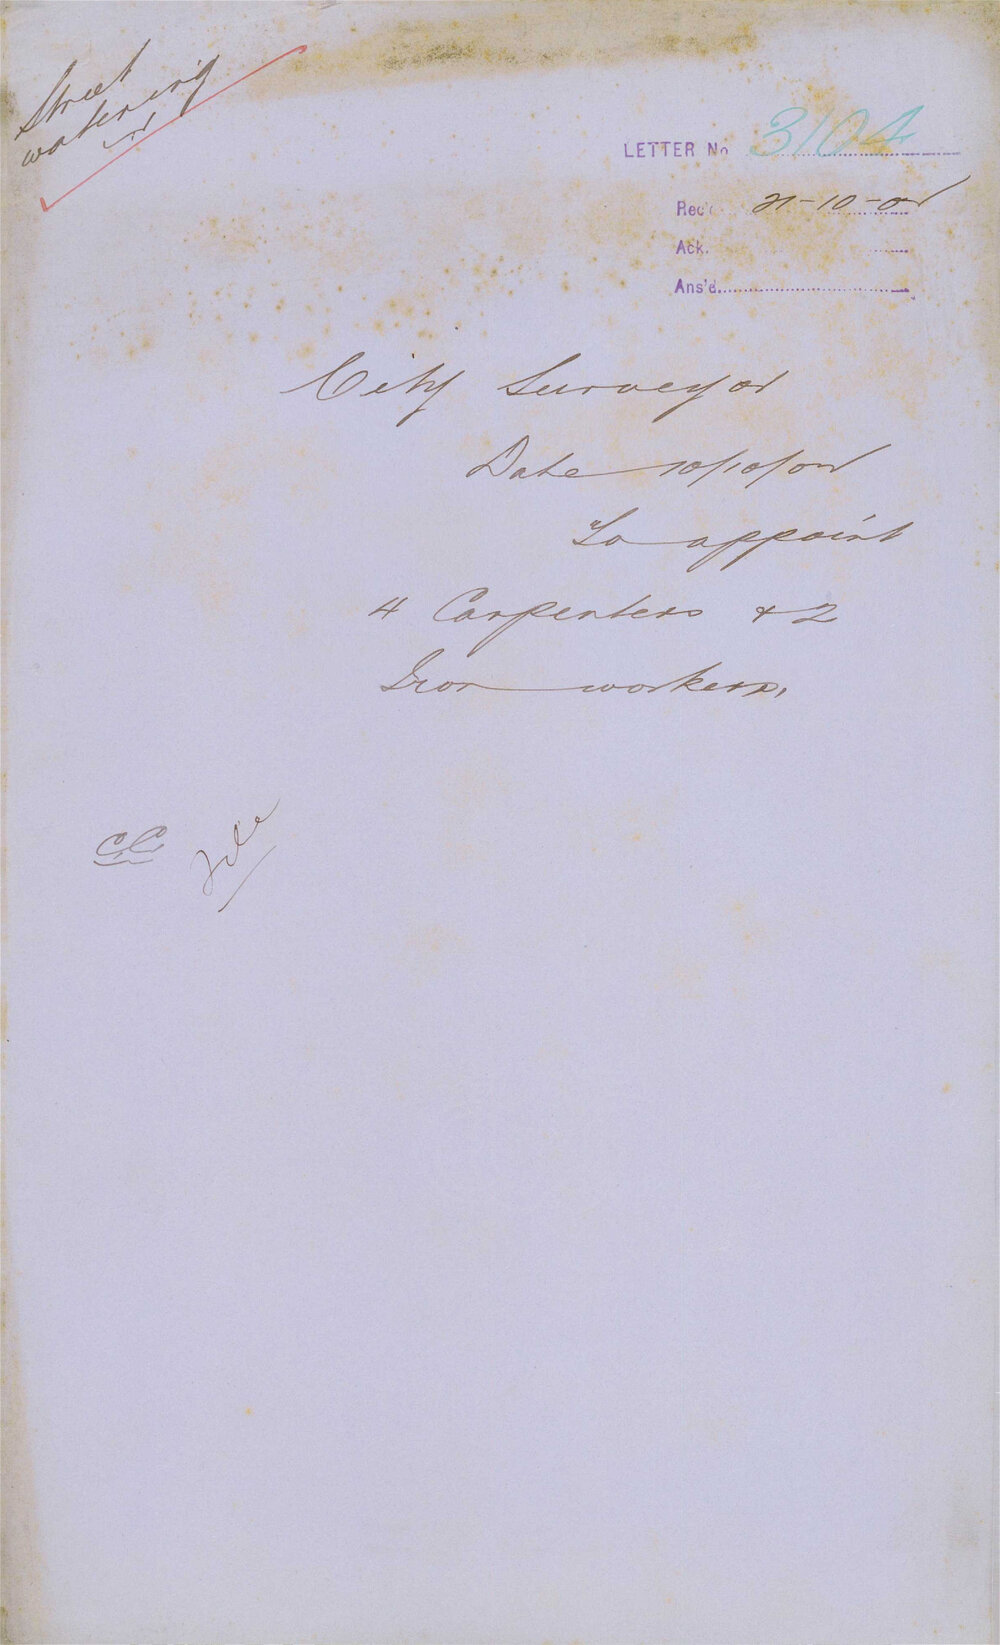 Street
watering
LETTER No 3104
Rec'd 21-10-01
Ack.
Ans'd
City Surveyor
Date 10/10/01
To appoint
4 Carpenters & 2
Iron workers.
CC File